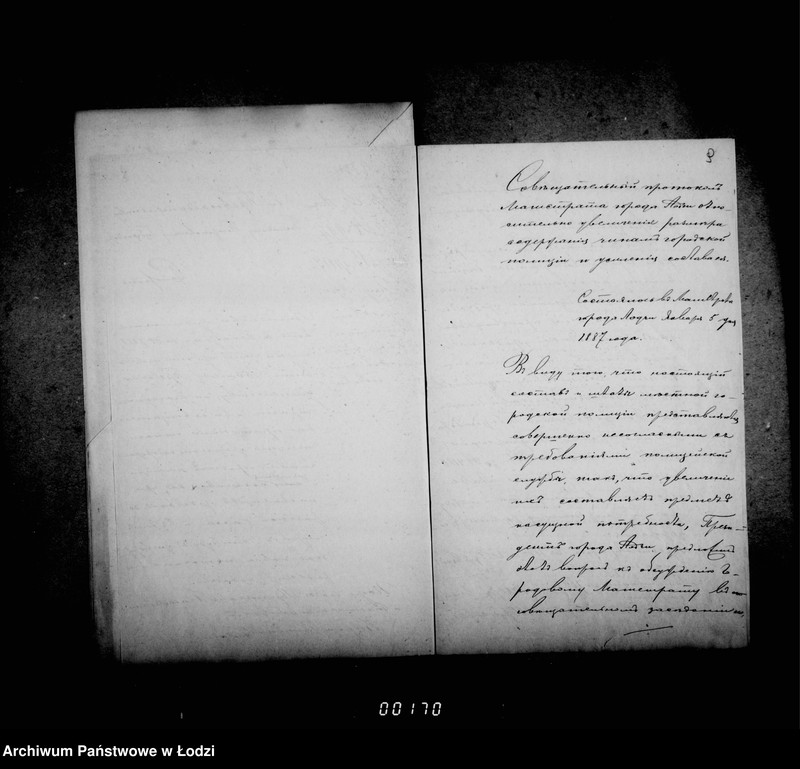 9
Совѣщательный протоколъ
Магистрата города Лодзи отно-
сительно увеличенія размѣра
содержанія чинамъ городской
полиціи и усиленія состава ея.
Состоялось въ Магистратѣ
города Лодзи Января 5 дня
1887 года.
Въ виду того, что настоящій
составъ и штатъ мѣстной го-
родской полиціи представляютъ
совершенно несогласными съ
требованіями полицейской
службы, такъ, что увеличеніе
ихъ составляетъ предметъ
насущной потребности, Прези-
дентъ города Лодзи, предложилъ
этотъ вопросъ къ обсужденію Го-
родовому Магистрату въ
совѣщательномъ засѣданіи
00170
Archiwum Państwowe w Łodzi